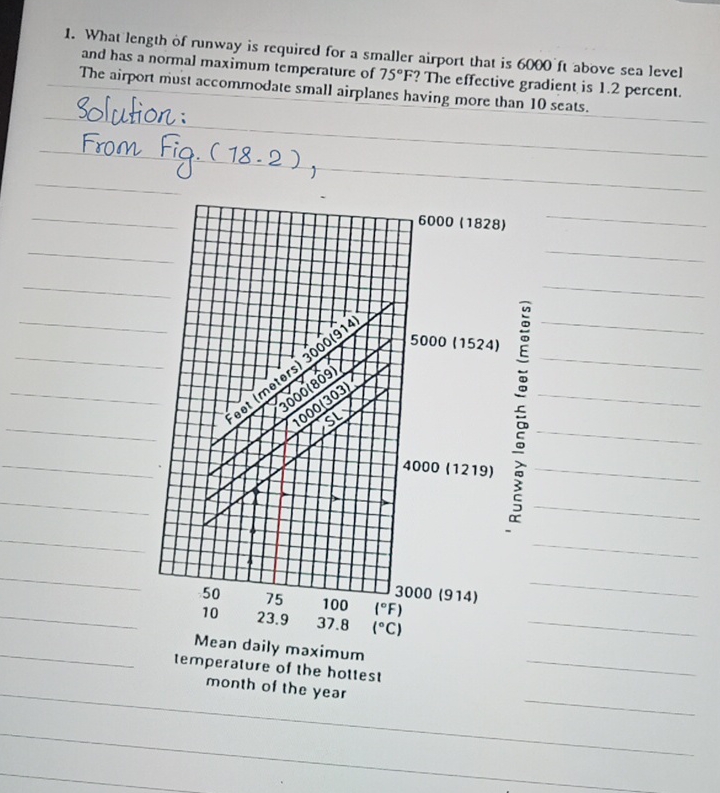 1. What length of runway is required for a smaller airport that is 6000 ft above sea level
and has a normal maximum temperature of 75°F? The effective gradient is 1.2 percent.
The airport must accommodate small airplanes having more than 10 seats.
Solution:
From Fig. (18-2),
6000 (1828)
5000 (1524)
4000 (1219)
3000 (914)
Runway length feet (meters)
Feet (meters) 3000(914)
3000(809)
1000(303)
SL
50 75 100 (°F)
10 23.9 37.8 (°C)
Mean daily maximum
temperature of the hottest
month of the year